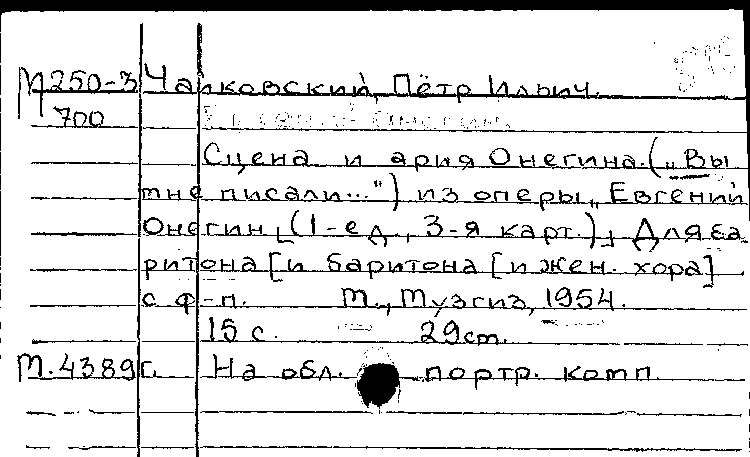 М250-3 Чайковский, Пётр Ильич.
700 Евгений Онегин.
Сцена и ария Онегина. („Вы
мне писали...") из оперы „Евгений
Онегин" (1-е д., 3-я карт.) Для ба
ритона [и баритона [и жен. хора]
с ф-п. М., Музгиз, 1954.
15 с. 29 см.
М.4389г. На обл. портр. комп.